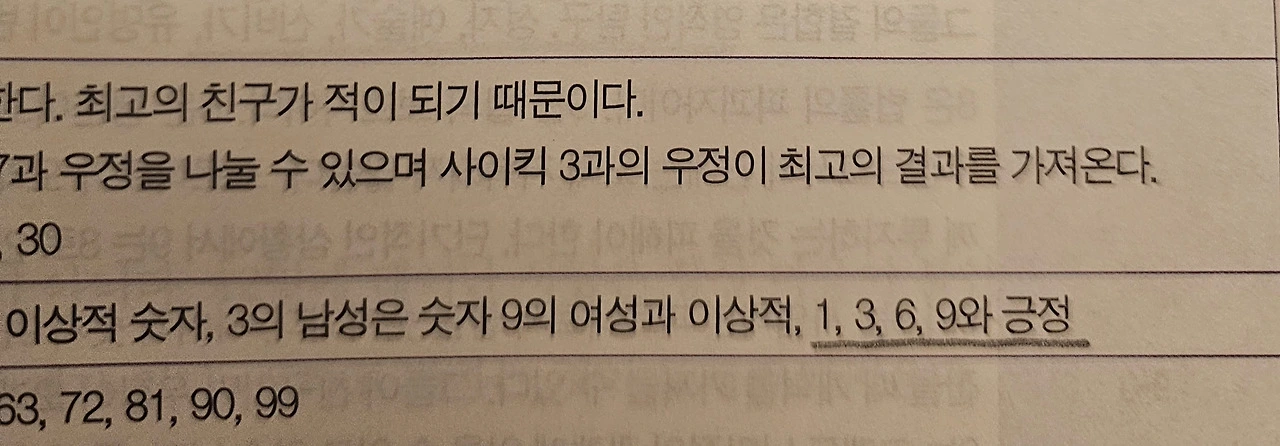 한다. 최고의 친구가 적이 되기 때문이다.
7과 우정을 나눌 수 있으며 사이킥 3과의 우정이 최고의 결과를 가져온다.
, 30
이상적 숫자, 3의 남성은 숫자 9의 여성과 이상적, 1, 3, 6, 9와 긍정
63, 72, 81, 90, 99